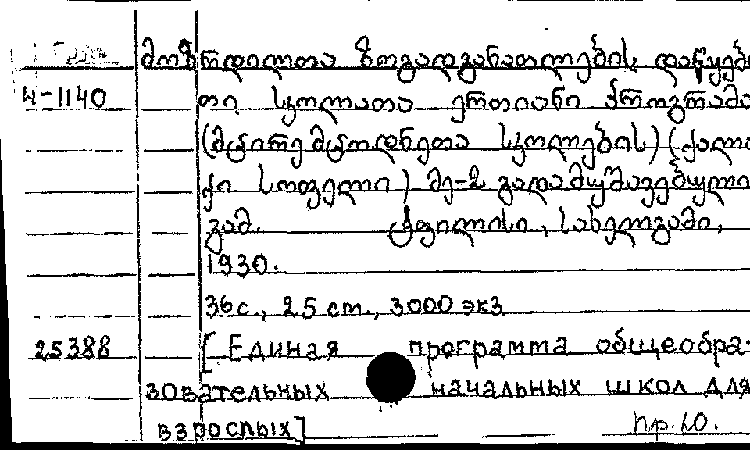 მოზრდილთა ზოგადგანათლების დაწყებ
4-1140 თი სკოლათა ერთიანი პროგრამა
(მცირე მცოდნეთა სკოლების) (ქალა
ქი სოფელი) მე-2 გადამუშავებული
გამ. ტფილისი, სახელგამი,
1930.
36 с., 25 cm., 3000 экз
25388 [Единая программа общеобра-
зовательных начальных школ для
взрослых] пр. 10.